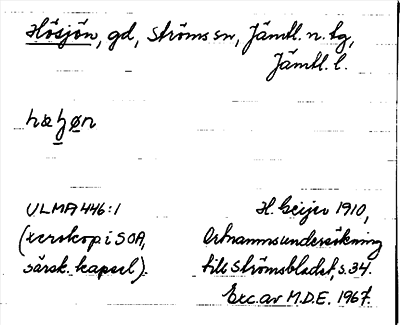 Hösjön, gd, Ströms sn, Jämtl. n. tg,
Jämtl. l.
hæʒøn
ULMA 446:1
(xerokop i SOA,
särsk. kapsel).
H. Geijer 1910,
Ortnamnsundersökning
till Strömsbladet, s. 34.
Exc. av M.D.E. 1967.